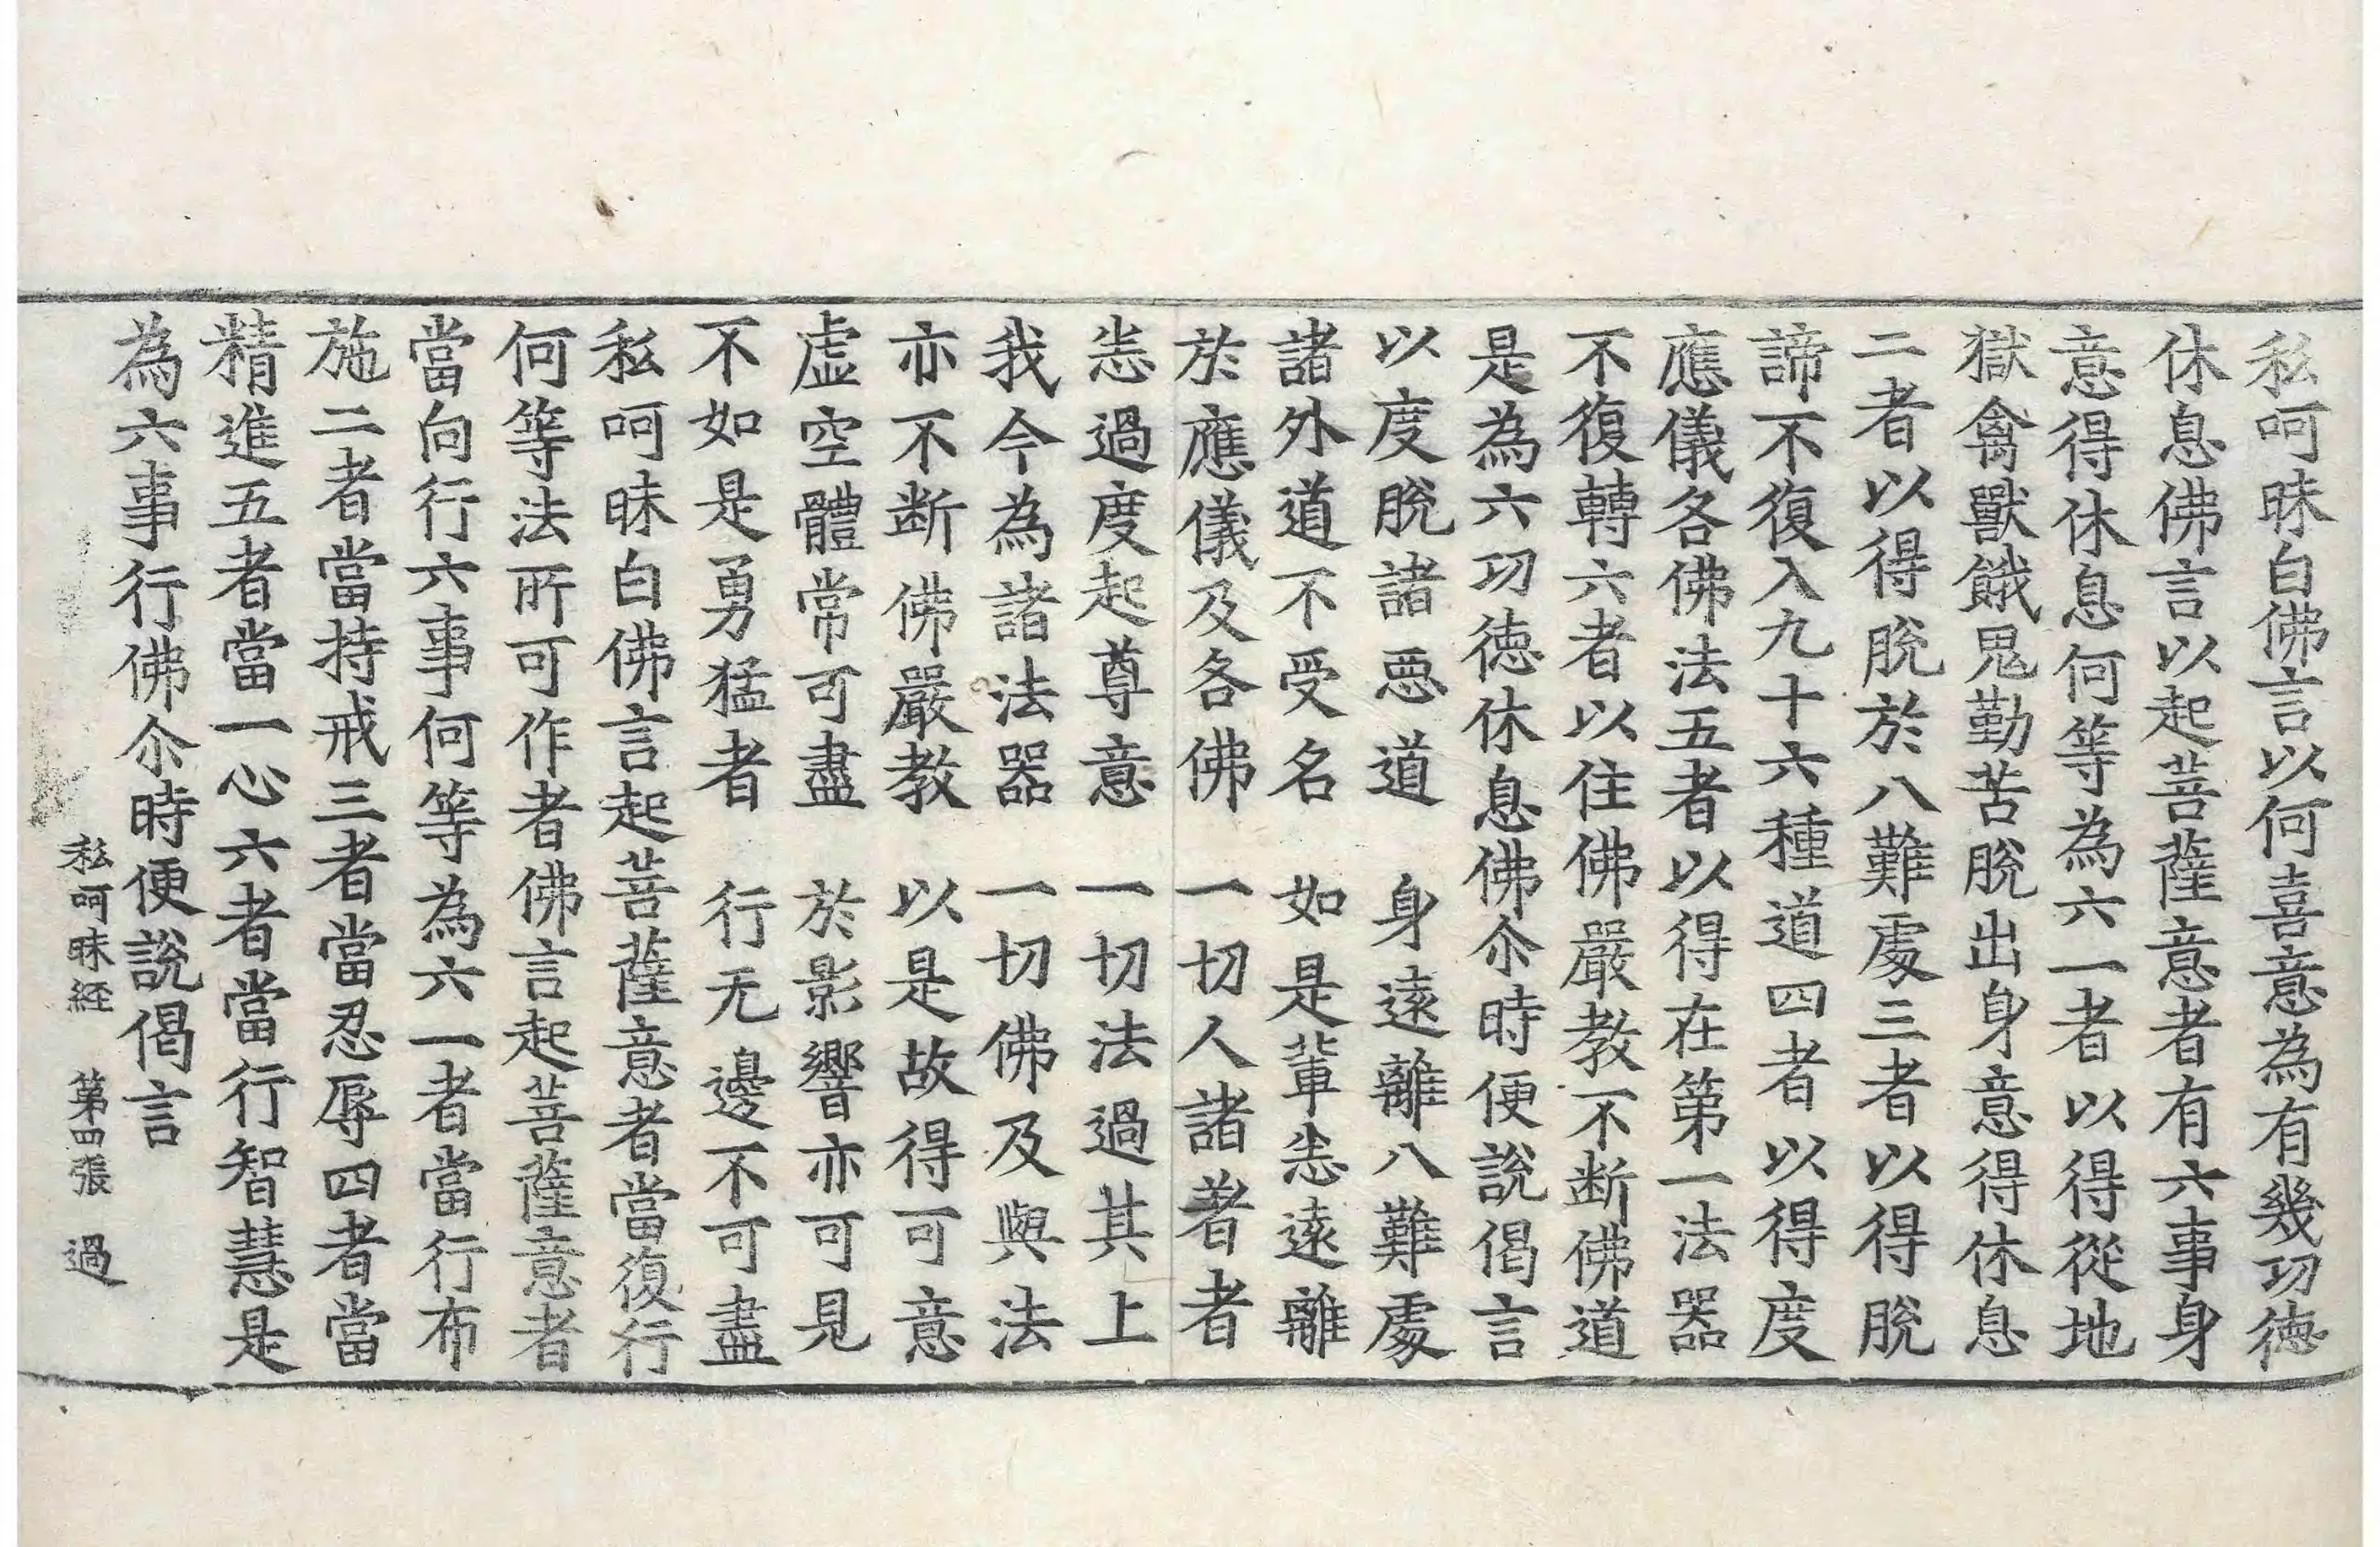 私呵昧白佛言以何喜意為有幾功徳
休息佛言以起菩薩意者有六事身
意得休息何等為六一者以得從地
獄禽獸餓鬼勤苦脫出身意得休息
二者以得脫於八難處三者以得脫
諦不復入九十六種道四者以得度
應儀各佛法五者以得在第一法器
不復轉六者以住佛嚴教不断佛道
是為六功徳休息佛尒時便說偈言
以度脫諸惡道　身遠離八難處
諸外道不受名　如是輩恙遠離
於應儀及各佛　一切人諸著者
恙過度起尊意　一切法過其上
我今為諸法器　一切佛及與法
亦不断佛嚴教　以是故得可意
虛空體常可盡　於影響亦可見
不如是勇猛者　行无邊不可盡
私呵昧白佛言起菩薩意者當復行
何等法所可作者佛言起菩薩意者
當向行六事何等為六一者當行布
施二者當持戒三者當忍辱四者當
精進五者當一心六者當行智慧是
為六事行佛尒時便說偈言
私呵昧経　第四張　過